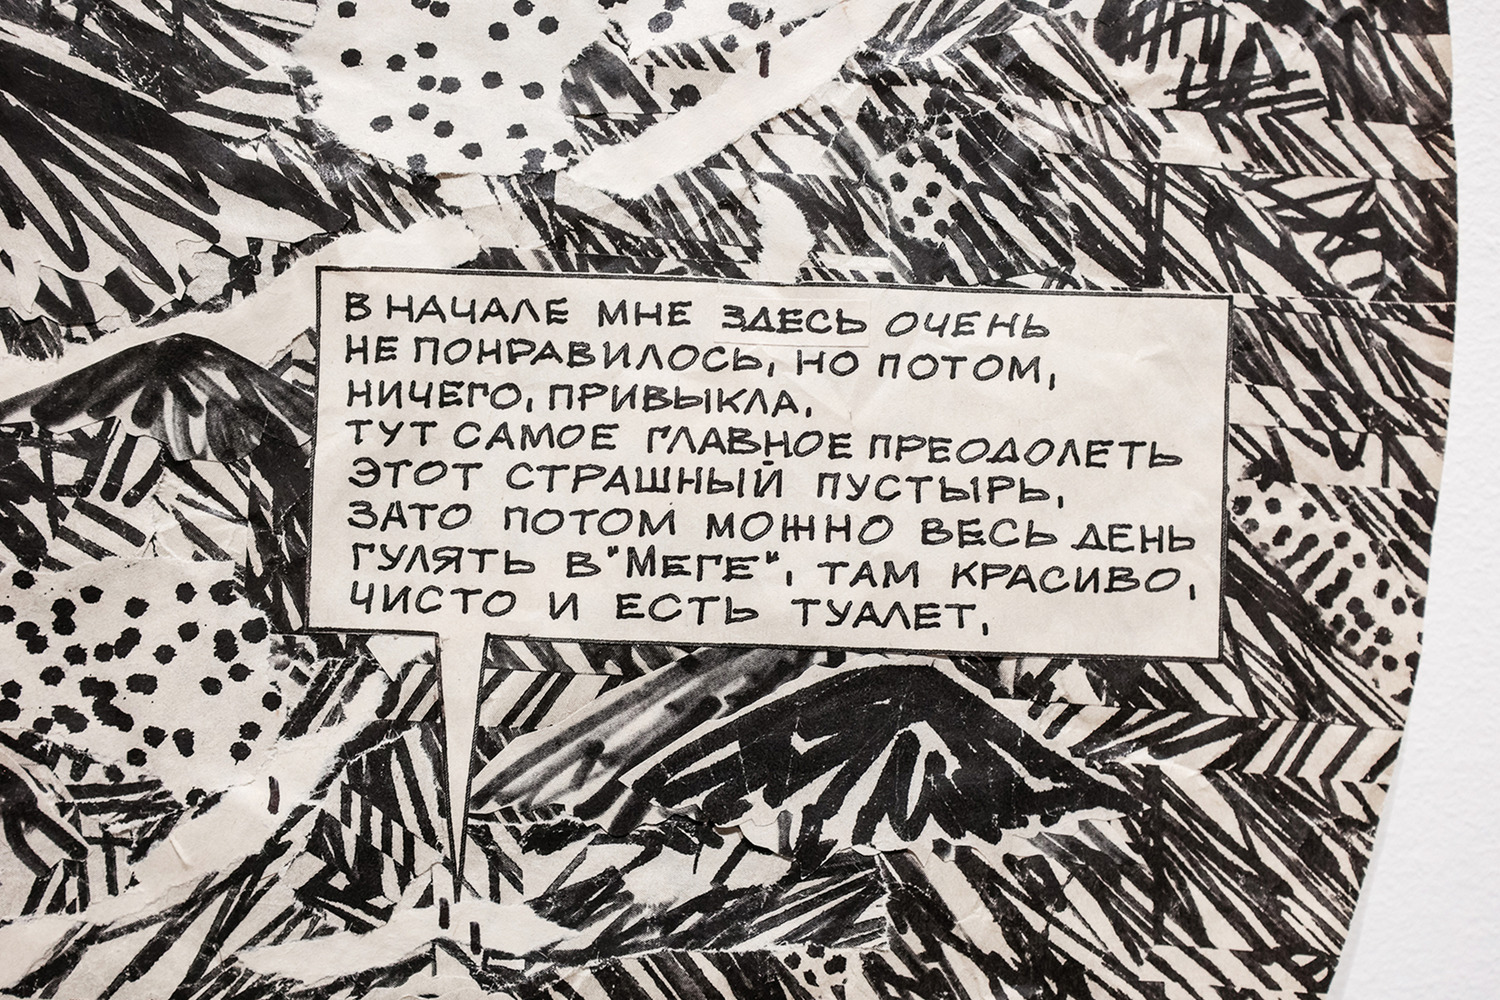 В НАЧАЛЕ МНЕ ЗДЕСЬ ОЧЕНЬ
НЕ ПОНРАВИЛОСЬ, НО ПОТОМ,
НИЧЕГО, ПРИВЫКЛА,
ТУТ САМОЕ ГЛАВНОЕ ПРЕОДОЛЕТЬ
ЭТОТ СТРАШНЫЙ ПУСТЫРЬ,
ЗАТО ПОТОМ МОЖНО ВЕСЬ ДЕНЬ
ГУЛЯТЬ В "МЕГЕ", ТАМ КРАСИВО,
ЧИСТО И ЕСТЬ ТУАЛЕТ,